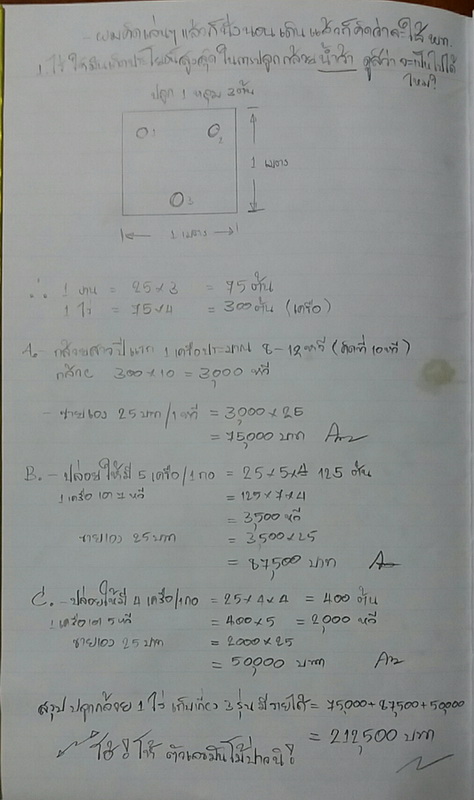 - ผมคิดเล่นๆ แล้วก็นั่งนอน เดิน แล้วก็คิดว่าจะใช้ พท.
1 ไร่ ให้เกิดประโยชน์สูงสุด ในการปลูกกล้วย น้ำว้า ดูสิว่า จะเป็นไปได้
ไหม?
ปลูก 1 หลุม 3 ต้น
1
2
3
1 เมตร
1 เมตร
∴ 1 งาน = 25 x 3 = 75 ต้น
1 ไร่ = 75 x 4 = 300 ต้น (เครือ)
A. กล้วยสาวปีแรก 1 เครือประมาณ 8 - 12 หวี (คิดที่ 10 หวี)
300 x 10 = 3,000 หวี
- ขายเอง 25 บาท/1 หวี = 3,000 x 25
= 75,000 บาท
B. - ปล่อยให้มี 5 เครือ/1 กอ = 25 x 5 x 4 125 ต้น
1 เครือ เอา 7 หวี = 125 x 7 x 4
= 3,500 หวี
ขายเอง 25 บาท = 3,500 x 25
= 87,500 บาท
C. - ปล่อยให้มี 4 เครือ/1 กอ = 25 x 4 x 4 = 400 ต้น
1 เครือ เอา 5 หวี = 400 x 5 = 2,000 หวี
ขายเอง 25 บาท = 2000 x 25
= 50,000 บาท
สรุป ปลูกกล้วย 1 ไร่ เก็บเกี่ยว 3 รุ่น มีรายได้ = 75,000 + 87,500 + 50,000
= 212,500 บาท